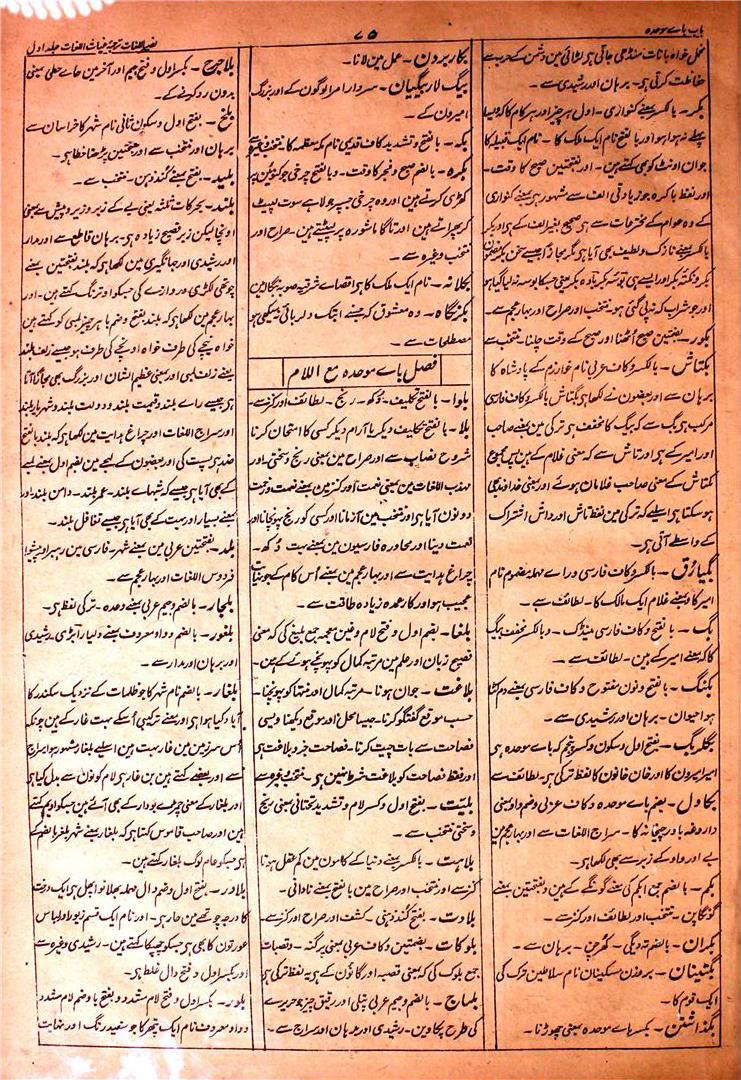 باب باے موحدہ
۷۵
نصیر اللغات ترجمۂ غیاث اللغات جلد اول
مخمل خواہ بانات منڈھی جاتی ہی لڑائی مین دشمن کے حربے سے
حفاظت کرتی ہی۔ برہان اور رشیدی سے۔
بکر۔ بالکسر بمعنے کنواری۔ اول ہر چیز اور ہر کام کا کہ ویسا
پہلے نہ ہوا ہو اور بالفتح نام ایک ملک کا۔ نام ایک قبیلہ کا
جوان اونٹ کو بھی کہتے ہین۔ اور بفتحتین صبح کا وقت۔
اور لفظ باکرہ جو زیادتی الف سے مشہور ہی بمعنے کنواری
کے وہ عوام کے مخترعات سے ہی صحیح بغیر الف کے ہی اور بکر
بالکسر بمعنے نازک و لطیف بھی آیا ہی مگر مجازاً جیسے سخن بکر مضمون
بکر و نکتہ بکر اور ایسے ہی
اور جو شراب کہ نہ پی گئی ہو۔ منتخب اور صراح اور بہار عجم سے۔
بکور۔ بضمتین صبح اُٹھنا اور صبح کے وقت چلنا۔ منتخب سے
بکتاش۔ بالکسر و کاف عربی نام خوارزم کے پادشاہ کا
برہان سے اور بعضون نے لکھا ہی بکتاش بالکسر و کاف فارسی
مرکب ہی بگ سے کہ بیگ کا مخفف ہی ترکی مین بمعنے صاحب
اور امیر کے ہی اور تاش سے کہ بمعنی غلام کے ہین پس مجموع
بکتاش کے معنی صاحب غلامان ہوئے اور بمعنی خداوند بھی
ہو سکتا ہی اسلیے کہ ترکی مین لفظ تاش اور داش اشتراک
کے واسطے آتی ہی۔
بگیارُق۔ بالکسر و کاف فارسی و راے مہملہ مضموم نام
امیر کا و بمعنے غلام ایک مالک کا۔ لطائف سے۔
بگ۔ بالفتح و کاف فارسی مینڈک۔ و بالکسر مخفف بیگ
کا کہ بمعنے امیر کے ہین۔ لطائف سے۔
بگنگ۔ بالفتح و نون مفتوح و کاف فارسی بمعنے دم کٹا
ہوا حیوان۔ برہان اور رشیدی سے۔
بگلربیگ۔ بفتح اول و سکون و کسر پنجم کہ باے موحدہ ہی
امیر امیرون کا اور خان خانون کا لفظ ترکی ہی۔ لطائف سے
بکاول۔ بضم باے موحدہ و کاف عربی و ضم واو بمعنی
داروغہ باورچیخانہ کا۔ سراج اللغات سے اور بہار عجم مین
بے اور واو کے زبر سے بھی لکھا ہی۔
بکم۔ بالضم جمع ابکم کی بمعنے گونگے کے ہین و بفتحتین بمعنے
گونگاپن۔ منتخب اور لطائف اور کنز سے۔
بکران۔ بالضم تہ دیگی۔ کھُرچن۔ برہان سے۔
بکتینان۔ بروزن مسکینان نام سلاطین ترک کی
ایک قوم کا۔
بگذاشتن۔ بکسر باے موحدہ بمعنی چھوڑنا۔
بکار بردن۔ عمل مین لانا۔
بیگ لاربیگیان۔ سردار امرا لوگون کے اور بزرگ
امیرون کے۔
بکہ۔ بالفتح و تشدید کاف قدیمی نام مکہ معظمہ کا منتخب وغیرہ سے
بکرہ۔ بالضم صبح و فجر کا وقت۔ و بالفتح چرخی جو کنوئین پر
کھڑی کرتے ہین اور وہ چرخی جسپر جولاہے سوت لپیٹ
کر پھراتے ہین اور تاگا ماشورہ پر لپیٹتے ہین۔ صراح اور
منتخب وغیرہ سے۔
بکلانہ۔ نام ایک ملک کا ہی اقصاے شرقیہ صوبہ بنگال مین
بکرنگاہ۔ وہ معشوق کہ جسنے ابتک دلربائی نہ سیکھی ہو
مصطلحات سے۔
فصل باے موحدہ مع اللام
بلوا۔ بالفتح تکلیف۔ دُکھ۔ رنج۔ لطائف اور کنز سے
بلا۔ بالفتح تکلیف دیکر یا آرام دیکر کسی کا امتحان کرنا
شروح نصاب سے اور صراح مین بمعنی رنج و سختی۔ اور
مہذب اللغات مین بمعنی نعمت اور کنز مین بمعنے نعمت و زحمت
دونون آیا ہی اور منتخب مین آزمانا اور کسی کو رنج پہونچانا اور
نعمت دینا اور محاورہ فارسیون مین بمعنے بہت دُکھ۔
چراغ ہدایت سے اور بہار عجم مین بمعنے اُس کام کے جو نہایت
عجیب ہو اور کار عمدہ زیادہ طاقت سے۔
بلغا۔ بضم اول و فتح لام و غین معجمہ جمع بلیغ کی کہ معنی
فصیح زبان اور علم مین مرتبہ کمال کو پہونچے ہوئے کے ہین۔
بلاغت۔ جوان ہونا۔ مرتبہ کمال اور منتہا کو پہونچنا۔
حسب موقع گفتگو کرنا۔ جیسا محل اور موقع دیکھنا ویسی
فصاحت سے بات چیت کرنا۔ فصاحت جزو بلاغت ہی
اور فقط فصاحت کو بلاغت شرط نہین ہی۔ منتخب وغیرہ سے
بلیّت۔ بفتح اول و کسر لام و تشدید تحتانی بمعنی رنج
و سختی منتخب سے۔
بلاہت۔ بالکسر بمعنے دنیا کے کامون مین کم عقل ہونا
کنز سے اور منتخب اور صراح مین بالفتح بمعنے نادانی۔
بلادت۔ بفتح کُند ذہنی۔ کشف اور صراح اور کنز سے۔
بلوکات۔ بضمتین و کاف عربی بمعنی پرگنہ۔ و قصبات
جمع بلوک کی کہ بمعنی قصبہ اور گانون کے ہی یہ لفظ ترکی ہی
بلماج۔ بالضم و جیم عربی پتلی اور رقیق چیز جو حریرے
کی طرح پکاوین۔ رشیدی اور برہان اور سراج سے۔
بلاجرح۔ بکسر اول و فتح جیم اور آخر مین حاے حطی بمعنی
بدون رد کرنے کے۔
بلخ۔ بفتح اول و سکون ثانی نام شہر کا خراسان سے
برہان اور منتخب سے اور بفتحتین پڑھنا خطا ہی۔
بلید۔ بفتح بمعنے کُند ذہن۔ منتخب سے۔
بلند۔ بحرکات ثلثہ یعنی بے کے زبر و زیر و پیش سے بمعنی
اونچا لیکن زیر فصیح زیادہ ہی۔ برہان قاطع سے اور مدار
اور رشیدی اور جہانگیری مین لکھا ہی کہ بلند بفتحتین بمعنے
چوکھی لکڑی در دروازے کی جسکو اوترنگ کہتے ہین۔ اور
بہار عجم مین لکھا ہی کہ بلند بفتح و ضم با ہر چیز لمبی کو کہتے ہین
خواہ نیچے کی طرف خواہ اونچے کی طرف ہو جیسے زلف بلند
یعنے زلف لمبی اور بمعنی عظیم الشان اور بزرگ بھی مجازاً آتا
ہی جیسے راے بلند و قیمت بلند و دولت بلند و شہریار بلند
اور سراج اللغات اور چراغ ہدایت مین لکھا ہی کہ بلند بالفتح
ضد ہی پست کی اور بعضون کے لہجے مین بضم اول بمعنے لمبے
کے بھی آیا ہی جیسے کہ شبہاے بلند۔ عمر بلند۔ دامن بلند اور
بمعنے بسیار اور بہت کے بھی آیا ہی جیسے تغافل بلند۔
بلد۔ بفتحتین عربی مین بمعنے شہر۔ فارسی مین رہبر اور پیشوا
فردوس اللغات اور بہار عجم سے۔
بلجار۔ بالضم و جیم عربی بمعنے وعدہ۔ ترکی لفظ ہی۔
بلغور۔ بالضم و واو معروف بمعنے دلیا رابڑی۔ رشیدی
اور برہان اور مدار سے۔
بلغار۔ بالضم نام شہر کا جو ظلمات کے نزدیک سکندر کا
آباد کیا ہوا ہی اور بمعنے ترکیبی اُسکے بہت غار کے ہین چونکہ
اُس سرزمین مین غار بہت ہین اسلیے بلغار مشہور ہوا سراج
سے اور بعضے کہتے ہین بن غار ہی لام کو نون سے بدل کیا ہی
اور بلغار کے معنی چمڑے بودار کے بھی آئے ہین جسکو ادیم کہتے
ہین اور صاحب قاموس کہتا ہی کہ بلغار بمعنے شہر بلغر بالضم کے
ہی جسکو عام لوگ بلغار کہتے ہین۔
بلادر۔ بفتح اول و ضم دال مہملہ بھلانوا پھل ہی ایک درخت
کا درجہ چوتھے مین حار ہی۔ اور نام ایک قسم زیور اور لباس
عورتون کا بھی ہی جسکو چپکا کہتے ہین۔ رشیدی وغیرہ سے
اور بکسر اول و فتح دال غلط ہی۔
بلور۔ بکسر اول و فتح لام مشدد و بفتح با و ضم لام مشدد
و واو معروف نام ایک پتھر کا جو سفید رنگ اور نہایت